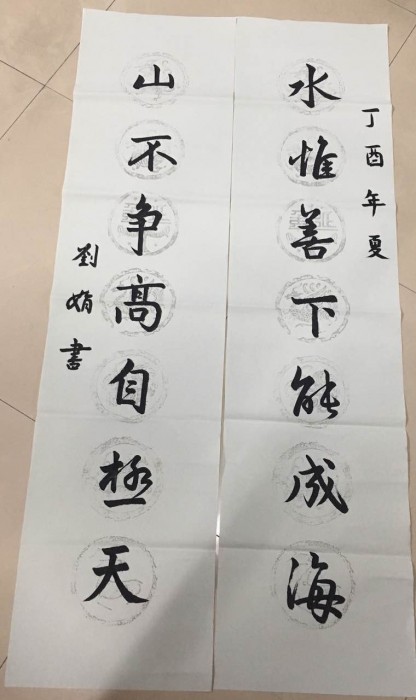 丁酉年夏
水惟善下能成海
山不争高自極天
劉娟書